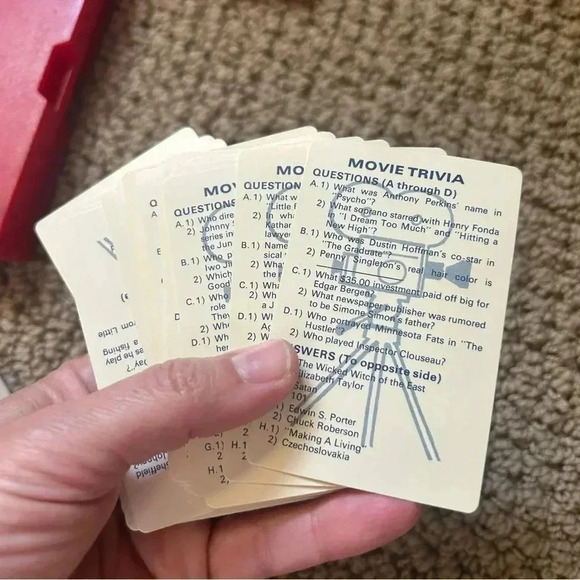 MOVIE TRIVIA
QUESTIONS (A through D)
A.1) What was Anthony Perkins' name in
"Psycho"?
2) What soprano starred with Henry Fonda
"I Dream Too Much" and "Hitting a
New High"?
B.1) Who was Dustin Hoffman's co-star in
"The Graduate"?
2) Penny Singleton's real hair color is
C.1) What $35.00 investment paid off big for
Edgar Bergen?
2) What newspaper publisher was rumored
to be Simone Simon's father?
D.1) Who portrayed Minnesota Fats in "The
Hustler"?
2) Who played Inspector Clouseau?
ANSWERS (To opposite side)
The Wicked Witch of the East
Elizabeth Taylor
Satan
101
1) Edwin S. Porter
2) Chuck Roberson
H.1) "Making A Living"
2) Czechoslovakia
MO
QUESTION
A.1) What w
"Little
2)
B.1) Name
sical
2) What
C.1) What
a J
2) Wh
D.1) Wh
2)
MO
QUESTIONS
A.1) Who dire
2) Johnny
eries in
the Jun
B.1) Who
Two Ji
2) Which
Good
C.1) Who
role
They
2) Who
D.1) Who
2) Who
G.1)
2
H.1
2,
H.1
2